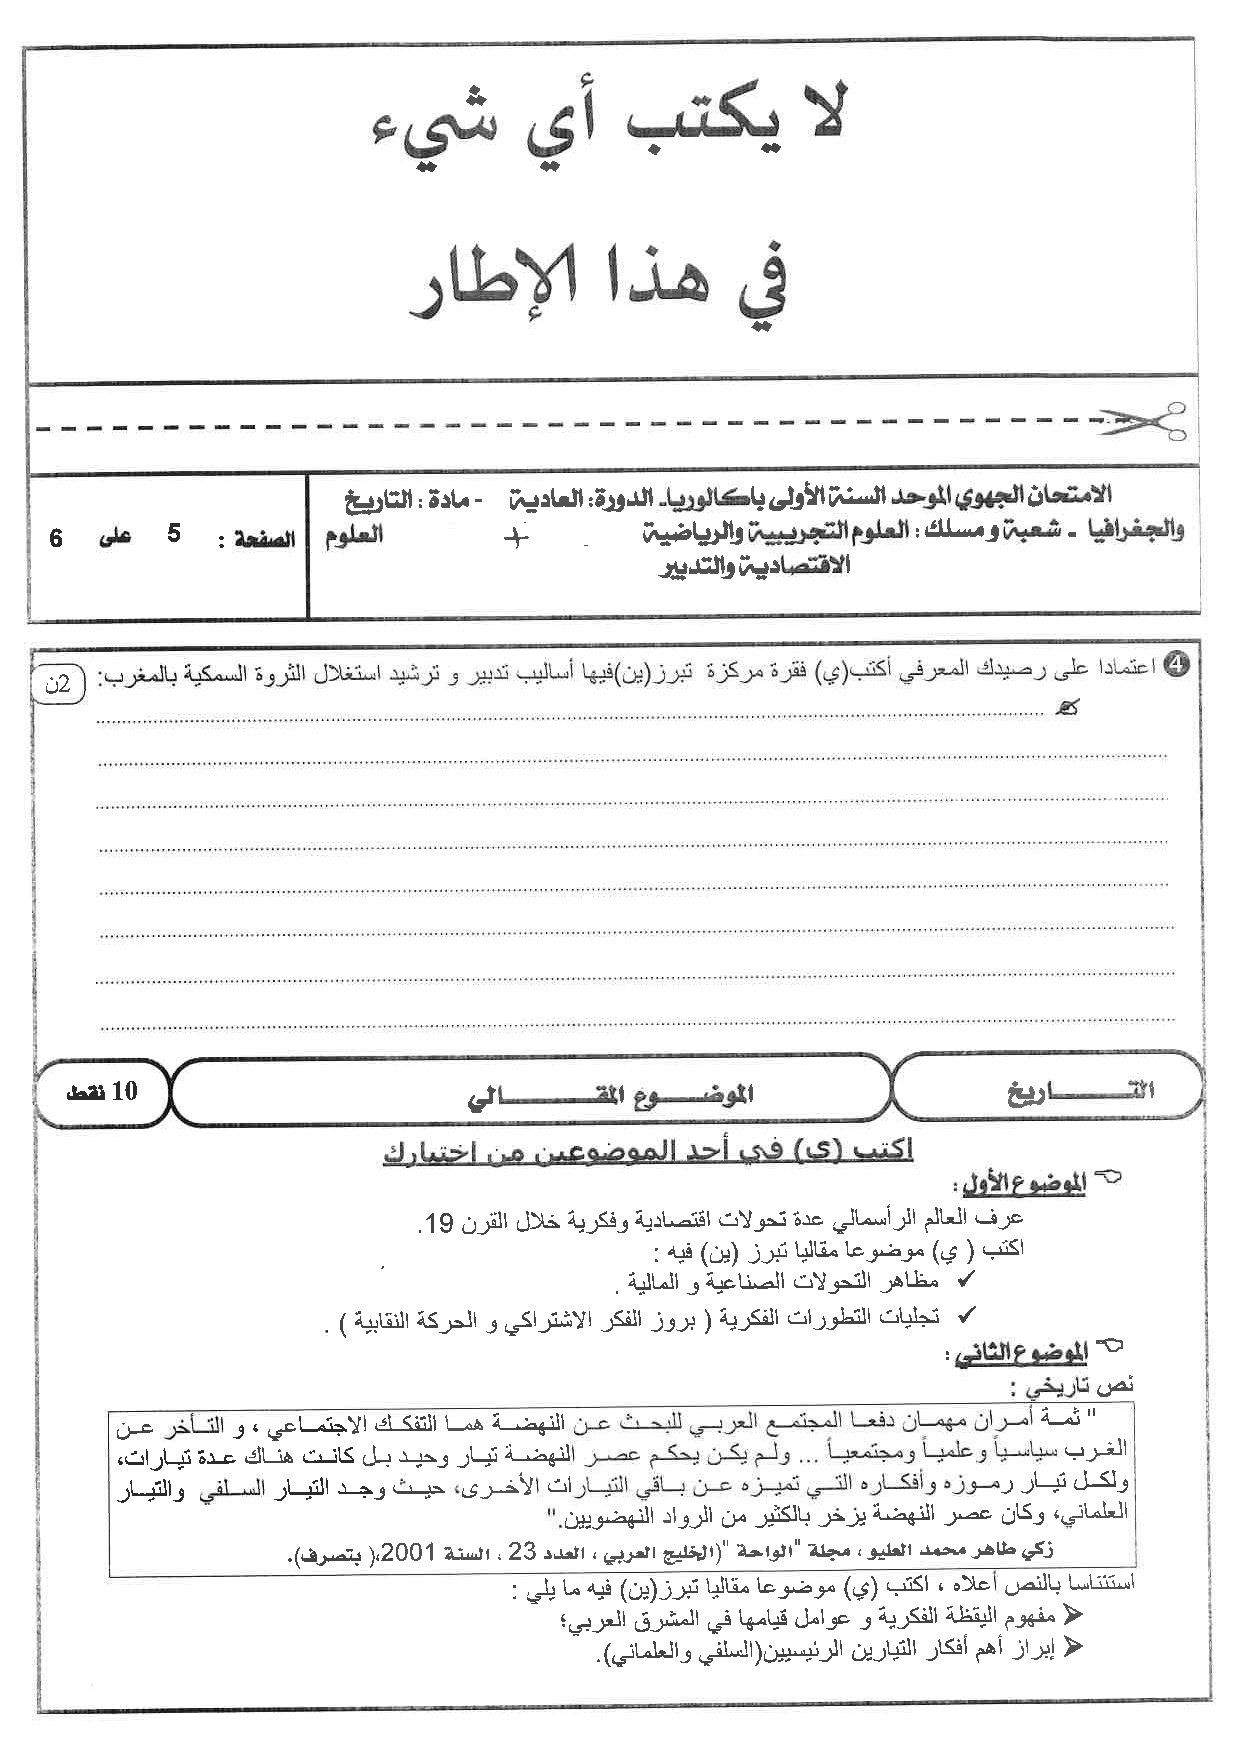 لا يكتب أي شيء
في هذا الإطار
الامتحان الجهوي الموحد السنة الأولى باكالوريا۔ الدورة: العادية - مادة : التاريخ
والجغرافيا ۔ شعبة و مسلك : العلوم التجريبية والرياضية + العلوم
الاقتصادية والتدبير
الصفحة : 5 على 6
4 اعتمادا على رصيدك المعرفي أكتب(ي) فقرة مركزة تبرز(ين)فيها أساليب تدبير و ترشيد استغلال الثروة السمكية بالمغرب:
2ن
التـــــــاريخ
الموضـــــوع المقـــــــــالي
10 نقط
اكتب (ي) في أحد الموضوعين من اختيارك
الموضوع الأول :
عرف العالم الرأسمالي عدة تحولات اقتصادية وفكرية خلال القرن 19.
اكتب ( ي) موضوعا مقاليا تبرز (ين) فيه :
✓ مظاهر التحولات الصناعية و المالية .
✓ تجليات التطورات الفكرية ( بروز الفكر الاشتراكي و الحركة النقابية ) .
الموضوع الثاني :
نص تاريخي :
" ثمة أمران مهمان دفعا المجتمع العربي للبحث عن النهضة هما التفكك الاجتماعي ، و التأخر عن
الغرب سياسياً وعلمياً ومجتمعياً ... ولم يكن يحكم عصر النهضة تيار وحيد بل كانت هناك عدة تيارات،
ولكل تيار رموزه وأفكاره التي تميزه عن باقي التيارات الأخرى، حيث وجد التيار السلفي والتيار
العلماني، وكان عصر النهضة يزخر بالكثير من الرواد النهضويين."
زكي طاهر محمد العليو ، مجلة "الواحة "(الخليج العربي ، العدد 23 ، السنة 2001،( بتصرف).
استئناسا بالنص أعلاه ، اكتب (ي) موضوعا مقاليا تبرز(ين) فيه ما يلي :
➤ مفهوم اليقظة الفكرية و عوامل قيامها في المشرق العربي؛
➤ إبراز أهم أفكار التيارين الرئيسيين(السلفي والعلماني).